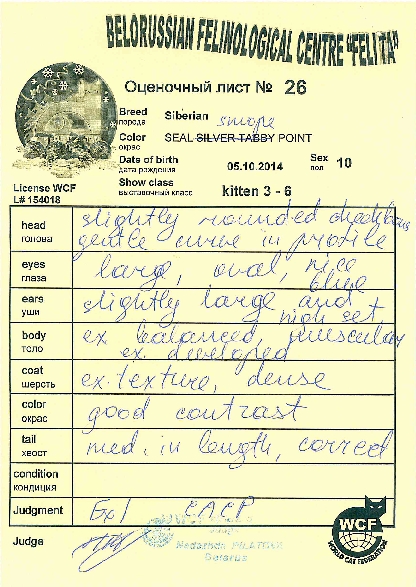 BELORUSSIAN FELINOLOGICAL CENTRE "FELITA"
Оценочный лист № 26
Breed Siberian
порода
smoke
Color SEAL SILVER TABBY POINT
окрас
Date of birth 05.10.2014 Sex 10
дата рождения пол
License WCF Show class kitten 3 - 6
L# 154018 выставочный класс
head slightly rounded cheekbons
голова gentle curve in profile
eyes large, oval, nice
глаза blue
ears slightly large and
уши high set
body ex. balanced, muscular
тело ex. developed
coat ex. texture, dense
шерсть
color good contrast
окрас
tail med. in length, corred
хвост
condition
кондиция
Judgment Ex1 CACP
Judge
Belarus
WCF
WORLD CAT FEDERATION